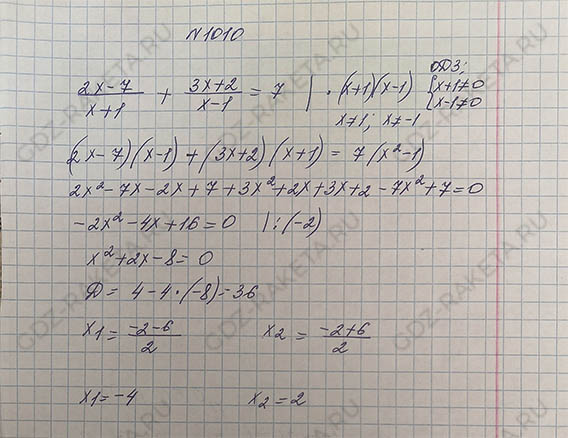 N1010
ОДЗ:
(2x-7)/(x+1) + (3x+2)/(x-1) = 7 | · (x+1)(x-1) {x+1≠0
x≠1; x≠-1 x-1≠0
(2x-7)(x-1) + (3x+2)(x+1) = 7(x²-1)
2x²-7x-2x+7+3x²+2x+3x+2-7x²+7=0
-2x²-4x+16=0 | :(-2)
x²+2x-8=0
D= 4-4·(-8)=36
x1= (-2-6)/2 x2= (-2+6)/2
x1=-4 x2=2
GDZ-RAKETA.RU